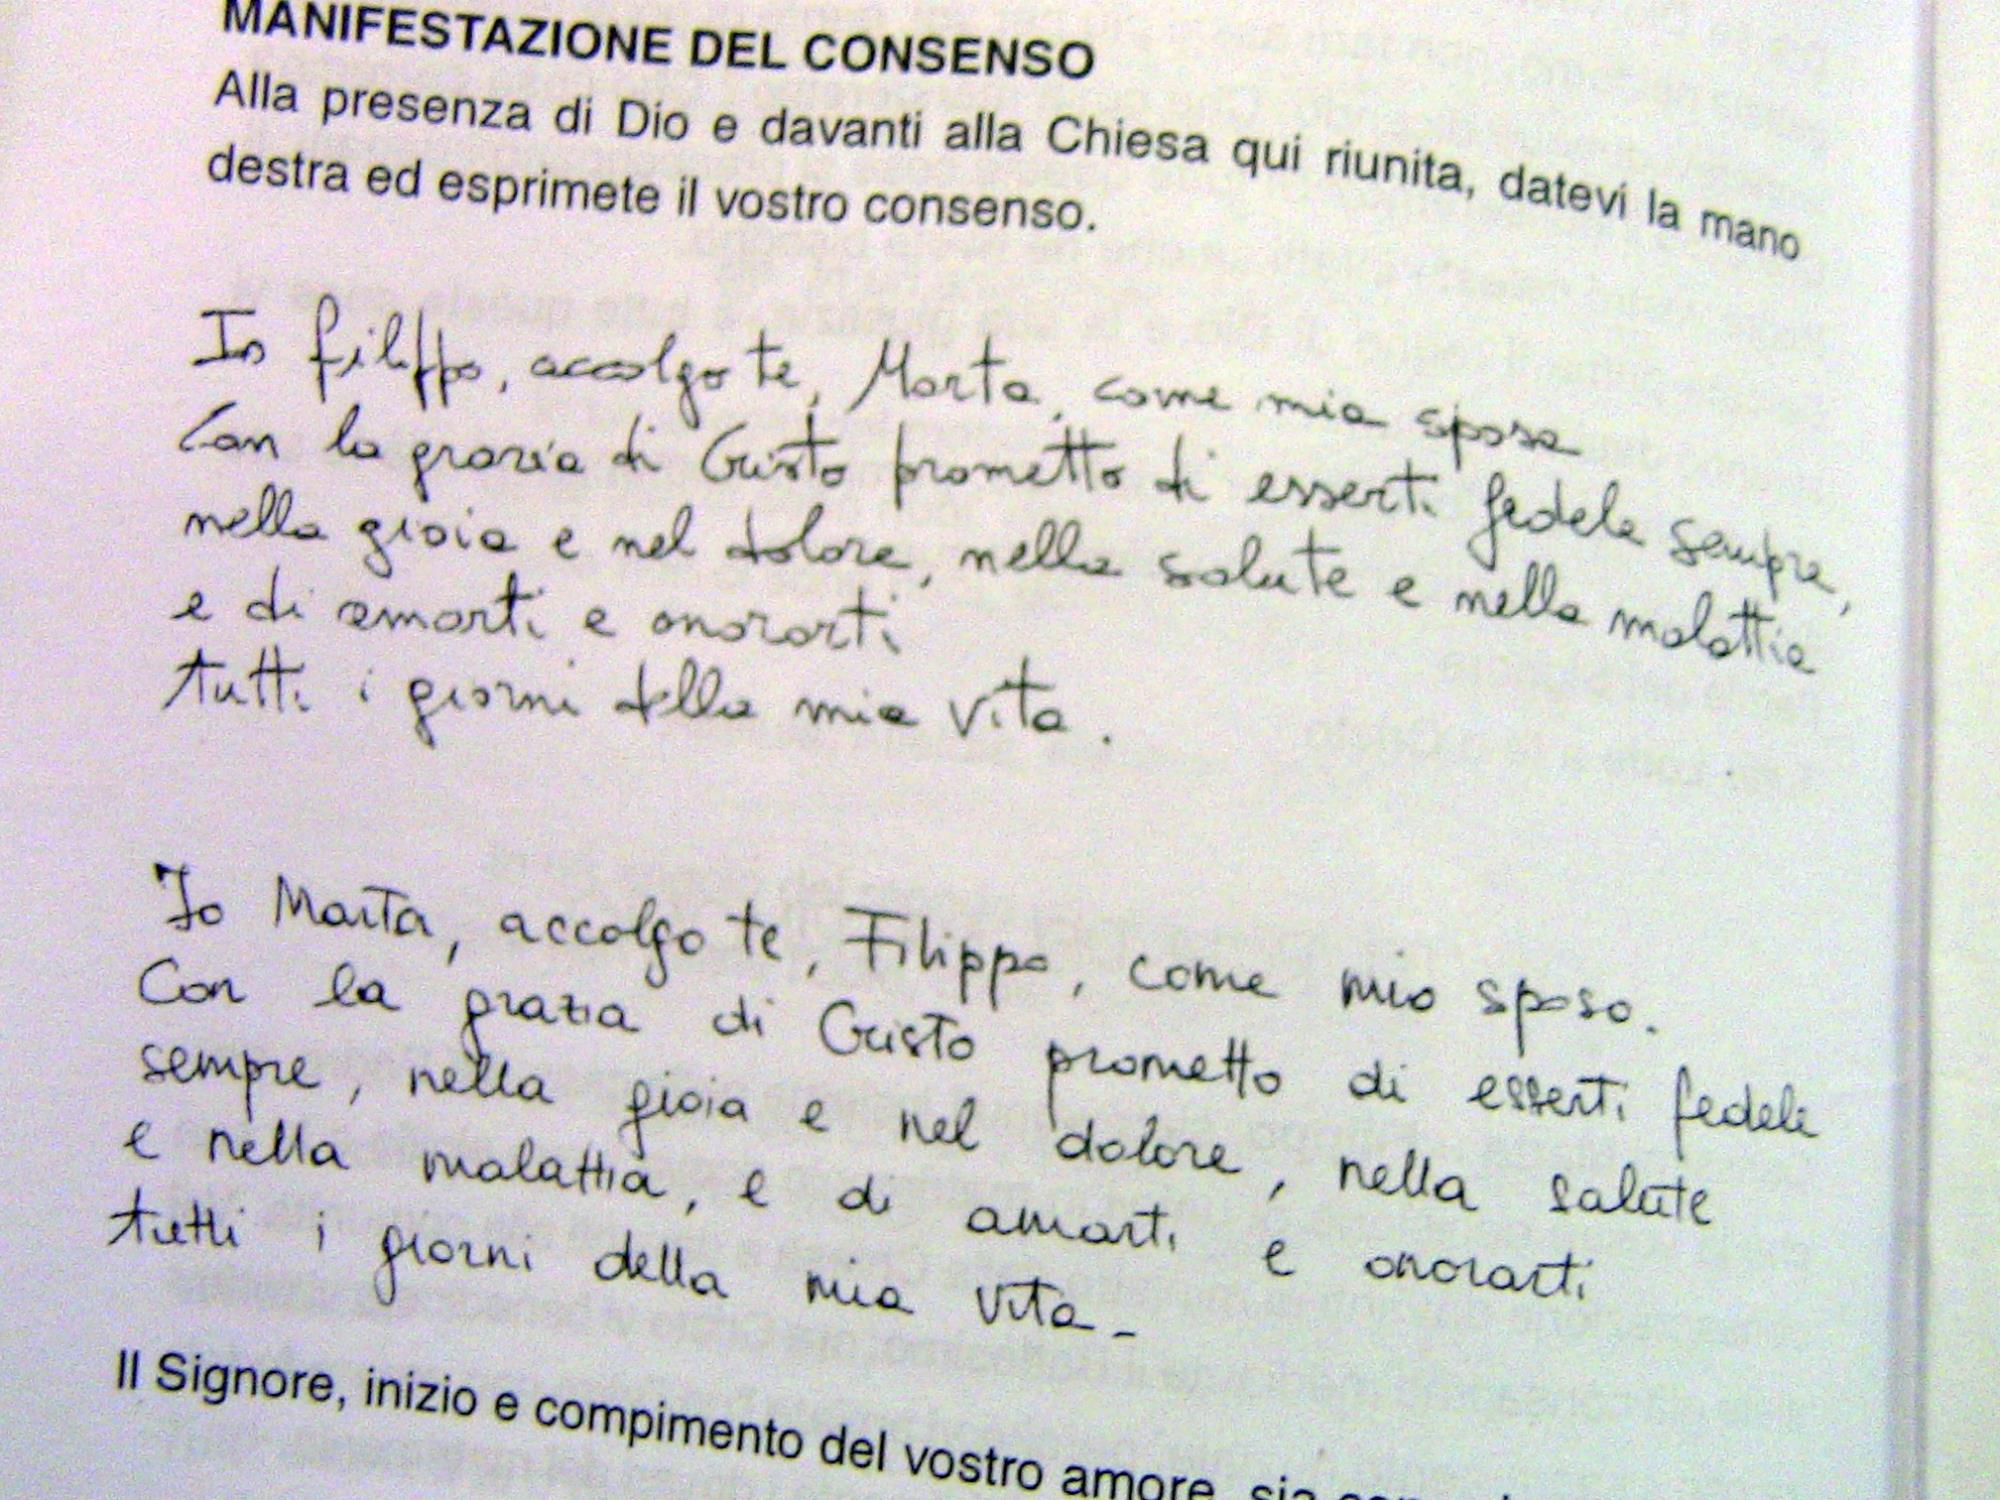 MANIFESTAZIONE DEL CONSENSO
Alla presenza di Dio e davanti alla Chiesa qui riunita, datevi la mano
destra ed esprimete il vostro consenso.
Io Filippo, accolgo te, Marta, come mia sposa
Con la grazia di Cristo prometto di esserti fedele sempre,
nella gioia e nel dolore, nella salute e nella malattia
e di amarti e onorarti
tutti i giorni della mia vita.
Io Marta, accolgo te, Filippo, come mio sposo.
Con la grazia di Cristo prometto di esserti fedele
sempre, nella gioia e nel dolore, nella salute
e nella malattia, e di amarti e onorarti
tutti i giorni della mia vita_
Il Signore, inizio e compimento del vostro amore, sia